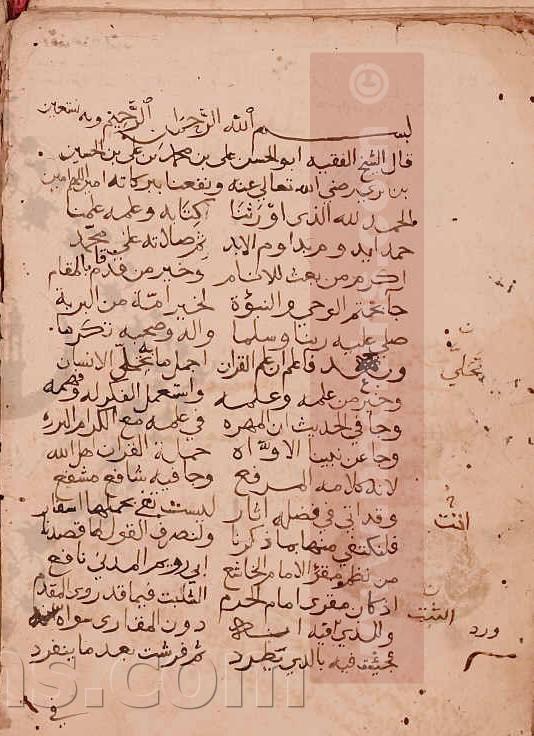 بسم الله الرحمن الرحيم وبه نستعين
قال الشيخ الفقيه ابو الحسن على بن محمد بن على بن الحسين
بن بري رضي الله تعالى عنه ونفعنا ببركاته امين
الحمد لله الذي اورثنا كتابه وعلمه علمنا
حمد ابد الابد ثم صلاته على محمد
اكرم من بعث للانام وخير من قد قام بالمقام
جا بختم الوحي والنبوة لخير امة من البرية
صلى عليه ربنا وسلما واله وصحبه تكرما
فاعلم ان علم القران اجمل ما به تحلى الانسان
وخير من علمه وعلمه واستعمل الفكر له وفهمه
وجا في الحديث ان المهره في علمه مع الكرام البرره
وجا عن نبينا الاواه حملة القران هل الله
لانه كلامه المرفع وجا فيه شافع مشفع
وقد اتى في فضله اثار ليست تفي بحملها اسفار
فلنكتفي منها بما ذكرنا ولنصرف القول لما قصدنا
من نظم مقرإ الامام الخاشع ابي رويم المدني نافع
اذ كان مقرى امام الحرم الثبت فيما قد روى المقدم
وللذي فيه انه دون المقارى سواه سنه
فجئت فيه بالذي يطرد ثم فرشت بعد ما ينفرد
في
تحلي
اتت
الثبت
ورد
ns.com